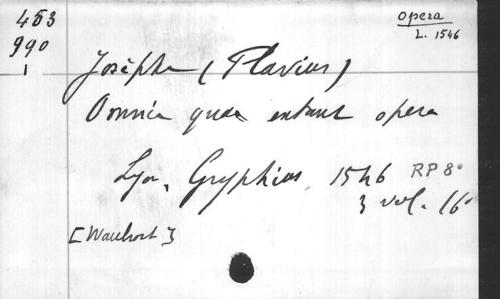 453
990
1
opera
L. 1546
Josèphe (Flavius)
Omnia quae extant opera
Lyon, Gryphius, 1546 RP 8°
3 vol. 16°